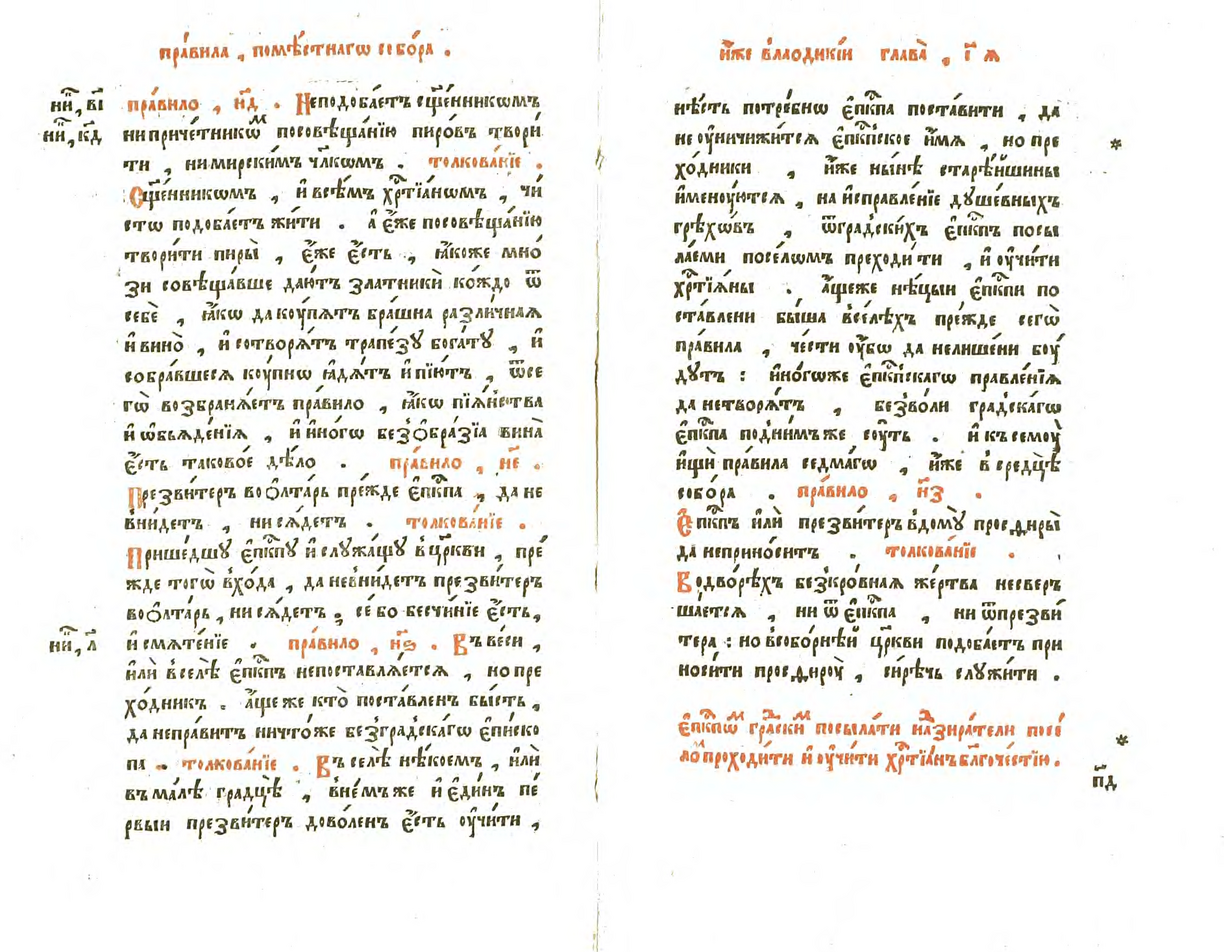 пра́вила , помѣ́стнагѡ собо́ра .
ни҃, в҃і
ни҃, к҃д
пра́вило , н҃д . Неподоба́етъ сщ҃е́нникѡмъ
ни приче́тникѡⷨ посовѣща́нїю пиро́въ твори́
ти , ни мирски́мъ чл҃кѡмъ . толкова́нїе .
Сщ҃е́нникѡмъ , и҆ всѣ́мъ хрⷭ҇тїа́нѡмъ , чи́
стѡ подоба́етъ жи́ти . а҆ е҆́же посовѣща́нїю
твори́ти пиры̀ , е҆́же е҆́сть , ꙗ҆́коже мно́
зи совѣща́вше даю́тъ златникѝ ко́ждо ѿ
себѐ , ꙗ҆́кѡ да ко́упятъ бра́шна разли́чная
и҆ вино̀ , и҆ сотворя́тъ трапе́зꙋ бога́тꙋ , и҆
собра́вшеся ко́упнѡ ꙗ҆дя́тъ и҆ пїю́тъ , ѿ се
гѡ̀ возбраня́етъ пра́вило , ꙗ҆́кѡ пїя́нства
и҆ ѡ҆бъяде́нїя , и҆ и҆но́гѡ безо́бра́зїа вина̀
е҆́сть таково́е дѣ́ло . пра́вило , н҃е .
Презви́теръ во ѻ҆лта́рь пре́жде е҆пкⷭ҇па , да не
вни́детъ , ни ся́детъ . толкова́нїе .
Прише́дшꙋ е҆пкⷭ҇пꙋ и҆ слꙋжа́щꙋ в цр҃кви , пре́
жде тогѡ̀ вхо́да , да не вни́детъ презви́теръ
во ѻ҆лта́рь , ни ся́детъ . се́ бо бесчи́нїе е҆́сть ,
ни҃, л҃
и҆ смяте́нїе . пра́вило , н҃ѕ . Въ ве́си ,
и҆лѝ в селѣ̀ е҆пкⷭ҇пъ непоставля́ется , но пре
хо́дникъ . а҆́ще же кто̀ поста́вленъ бы́сть ,
да неправитъ ничто́же безгра́дскагѡ е҆пи́ско
па . толкова́нїе . Въ селѣ̀ нѣ́коемъ , и҆лѝ
въ ма́лѣ градцѣ̀ , в не́мъ же и҆ е҆ди́нъ пе́
рвыи презви́теръ дово́ленъ е҆́сть оу҆чи́ти ,
и҆́же в лаодикі́и глава̀ , і҃ я
нѣ́сть потре́бнѡ е҆пкⷭ҇па поста́вити , да
не оу҆ничижи́тся е҆пкⷭ҇пское и҆́мя , но пре
хо́дники , и҆́же ны́нѣ старѣ́йшины
и҆менꙋ́ются , на и҆справле́нїе дꙋше́вныхъ
грѣхѡ́въ , ѿ гра́дски́хъ е҆пкⷭ҇пъ посы
ла́еми по се́лѡмъ преходи́ти , и҆ оу҆чи́ти
хрⷭ҇тїя́ны . а҆́ще же нѣ́цыи е҆пкⷭ҇пи по
ста́влени бы́ша в се́лѣхъ пре́жде сегѡ̀
пра́вила , че́сти оу҆́бѡ да не лише́ни боу́
дꙋтъ : и҆но́гѡже е҆пкⷭ҇пскагѡ правле́нїя
да не творя́тъ , без во́ли гра́дскагѡ
е҆пкⷭ҇па под ни́мъ же соу́ть . и҆ к семоу̀
и҆щѝ пра́вила седма́гѡ , и҆́же в средцѣ̀
собо́ра . пра́вило , н҃з .
Е҆пкⷭ҇пъ и҆лѝ презви́теръ в домꙋ̀ просѳиры̀
да не прино́ситъ . толкова́нїе .
В одво́рѣхъ безкро́вная же́ртва не свер
ша́ется , ни ѿ е҆пкⷭ҇па , ни ѿ презви́
тера : но в собо́рнѣй цр҃кви подоба́етъ при
носи́ти просѳироу̀ , си́рѣчь слꙋжи́ти .
*
е҆пкⷭ҇пѡⷨ гра́⁠ски́ⷨ посыла́ти на⁠зира́тели по се́
ло проходи́ти и҆ оу҆чи́ти хрⷭ҇тїа́нъ бл҃гоче́стїю .
*
п҃д